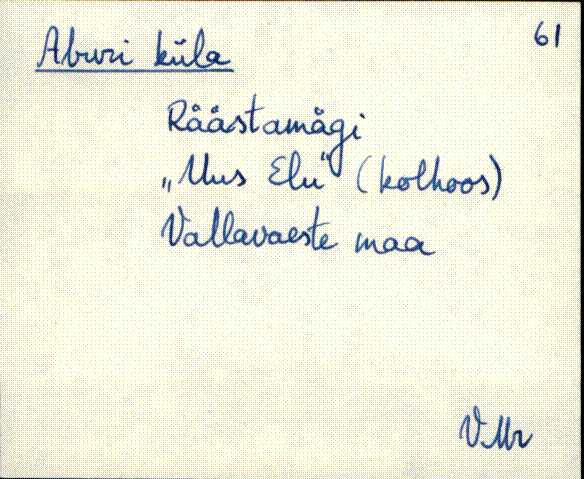 61
Aburi küla
Räästamägi
„Uus Elu" (kolhoos)
Vallavaeste maa
VMr